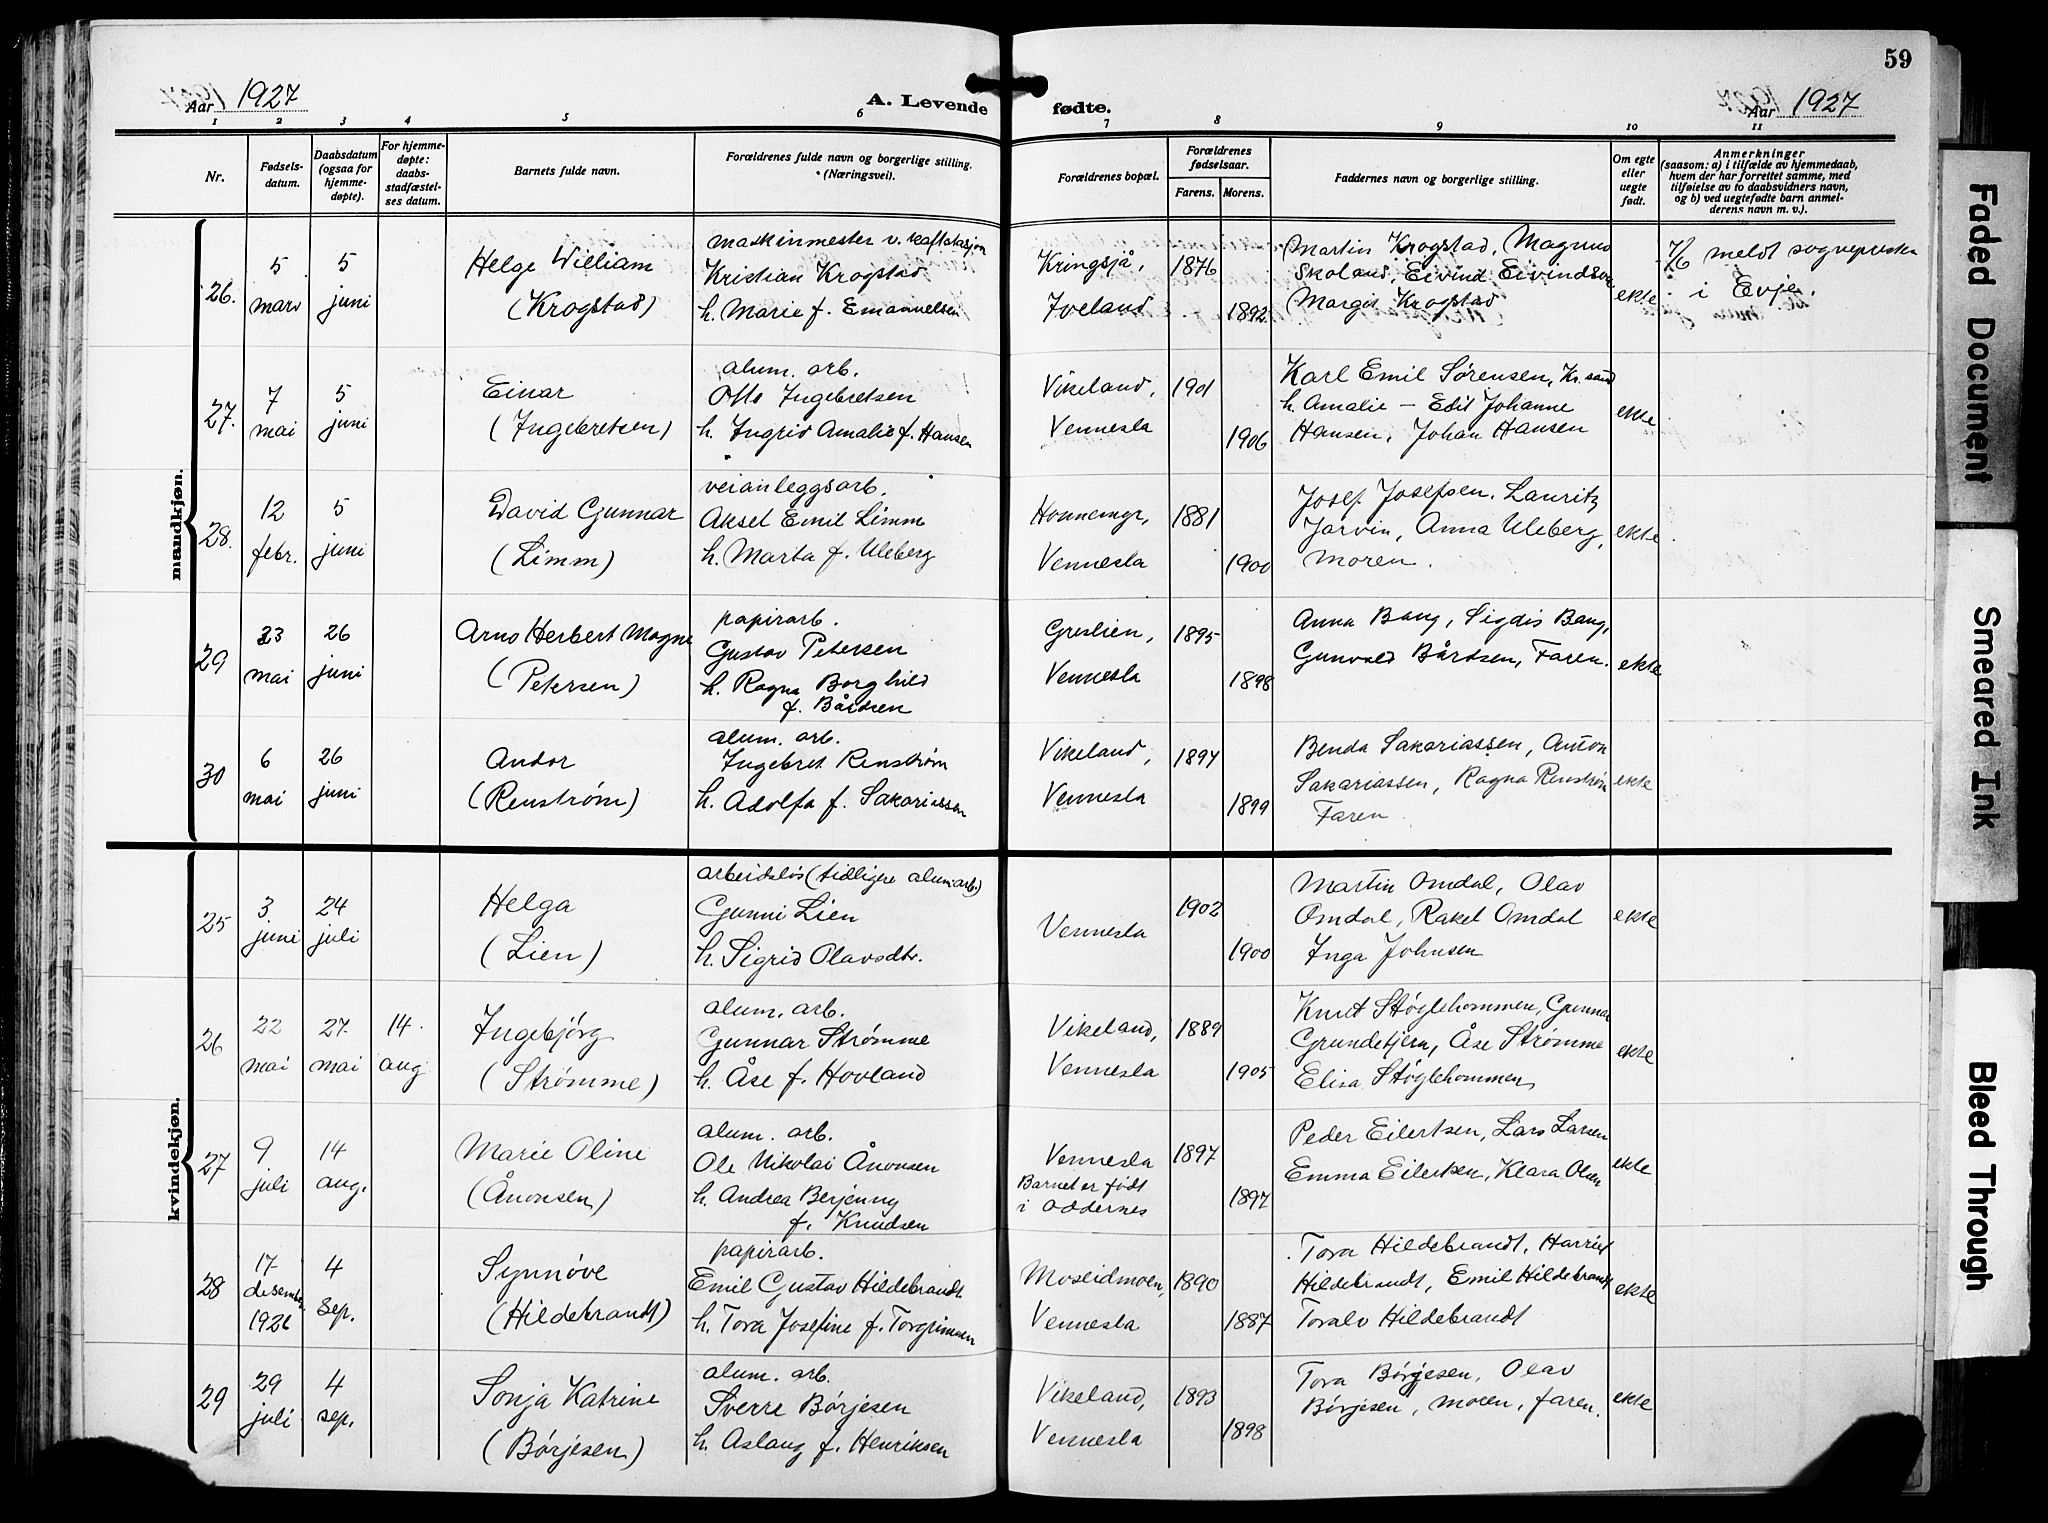 59
Aar 1927
A. Levende fødte.
Aar 1927
1 2 3 4 5 6 7 8 9 10 11
Nr.
Fødsels-
datum.
Daabsdatum
(ogsaa for
hjemme-
døpte).
For hjemme-
døpte:
daabs-
stadfæstel-
ses datum.
Barnets fulde navn.
Forældrenes fulde navn og borgerlige stilling.
(Næringsvei).
Forældrenes bopæl.
Forældrenes
fødselsaar.
Farens. Morens.
Faddernes navn og borgerlige stilling.
Om egte
eller
uegte
født.
Anmerkninger
(saasom: a) i tilfælde av hjemmedaab,
hvem der har forrettet samme, med
tilføielse av to daabsvidners navn,
og b) ved uegtefødte barn anmel-
derens navn m. v.).
mandkjøn.
26.
5
mars
5
juni
Helge William
(Krogstad)
maskinmester v. kaftstasjon
Kristian Krogstad
h. Marie f. Emanuelsen
Kringsjå,
Iveland
1876
1892
Martin Krogstad, Magnus
Skoland, Eivind Eivindson
Margit Krogstad
ekte
7/6 meldt sognepresten
i Evje.
27.
7
mai
5
juni
Einar
(Ingebretsen)
alum. arb.
Otto Ingebretsen
h. Ingrid Amalie f. Hansen
Vikeland,
Vennesla
1901
1906
Karl Emil Sørensen, Kr.sand
h. Amalie - Edit Johanne
Hansen, Johan Hansen
ekte
28.
12
febr.
5
juni
David Gunnar
(Limm)
veianleggsarb.
Aksel Emil Limm
h. Marta f. Uleberg
Honnemyr,
Vennesla
1881
1900
Josef Josefsen, Lauritz
Jarvin, Anna Uleberg,
moren.
ekte
29
23
mai
26
juni
Arno Herbert Magne
(Petersen)
papirarb.
Gustav Petersen
h. Ragna Borghild
f. Bårdsen
Greslien,
Vennesla
1895
1898
Anna Bang, Sigdis Bang,
Gunvald Bårdsen, Faren.
ekte
30
6
mai
26
juni
Andor
(Renstrøm)
alum. arb.
Ingebret Renstrøm
h. Adolfa f. Sakariassen
Vikeland,
Vennesla
1897
1899
Benda Sakariassen, Anton
Sakariassen, Ragna Renstrøm
Faren
ekte
kvindekjøn.
25
3
juni
24
juli
Helga
(Lien)
arbeidsløs (tidligere alum.arb.)
Gunni Lien
h. Sigrid Olavsdtr.
Vennesla
1902
1900
Martin Omdal, Olav
Omdal, Rakel Omdal
Inga Johnsen
ekte
26
22
mai
27.
mai
14.
aug
Ingebjörg
(Strømme)
alum. arb.
Gunnar Strømme
h. Åse f. Hovland
Vikeland,
Vennesla
1889
1905
Knut Støglehommen, Gunnar
Grundetjern, Åse Strømme
Elisa Støglehommen
ekte
27
9
juli
14
aug.
Marie Oline
(Ånonsen)
alum. arb.
Ole Nikolai Ånonsen
h. Andrea Berjenny
f. Knudsen
Vennesla
Barnet er født
i Oddernes
1897
1897
Peder Eilertsen, Lars Larsen
Emma Eilertsen, Klara Olsen
ekte
28
17
desember
1926
4
sep.
Synnöve
(Hildebrandt)
papirarb.
Emil Gustav Hildebrandt
h. Tora Josefine f. Torgrimsen
Moseidmoen,
Vennesla
1890
1887
Tora Hildebrandt, Harriet
Hildebrandt, Emil Hildebrandt
Toralv Hildebrandt
ekte
29
29
juli
4
sep.
Sonja Katrine
(Børjesen)
alum. arb.
Sverre Børjesen
h. Aslaug f. Henriksen
Vikeland,
Vennesla
1893
1898
Tora Børjesen, Olav
Børjesen, moren, faren.
ekte
Faded Document
Smeared Ink
Bleed Through